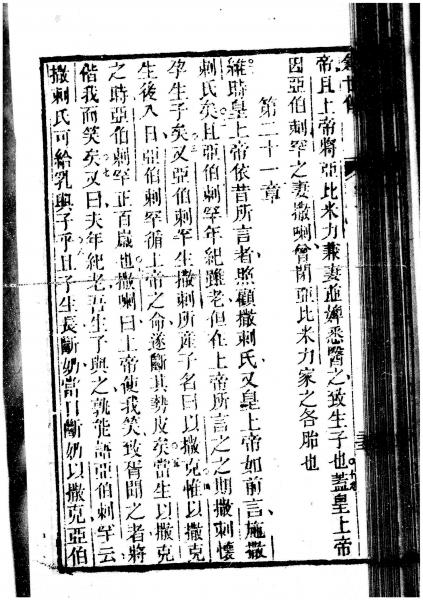 帝且上帝將亞比米力兼妻並婢悉醫之致生子也蓋皇上帝
因亞伯剌罕之妻撒喇曾閉亞比米力家之各胎也
第二十一章
維時皇上帝依昔所言者照顧撒剌氏又皇上帝如前言施撒
剌氏矣且亞伯剌罕年紀雖老但在上帝所言之之期撒剌懷
孕生子矣又亞伯剌罕生撒剌所產子名曰以撒克惟以撒克
生後八日亞伯剌罕循上帝之命遂斷其勢皮矣當生以撒克
之時亞伯剌罕正百歲也撒喇曰上帝使我笑致胥聞之者將
偕我而笑矣又曰夫年紀老吾生子與之孰能語亞伯剌罕云
撒剌氏可給乳與子乎且子生長斷奶當日斷奶以撒克亞伯